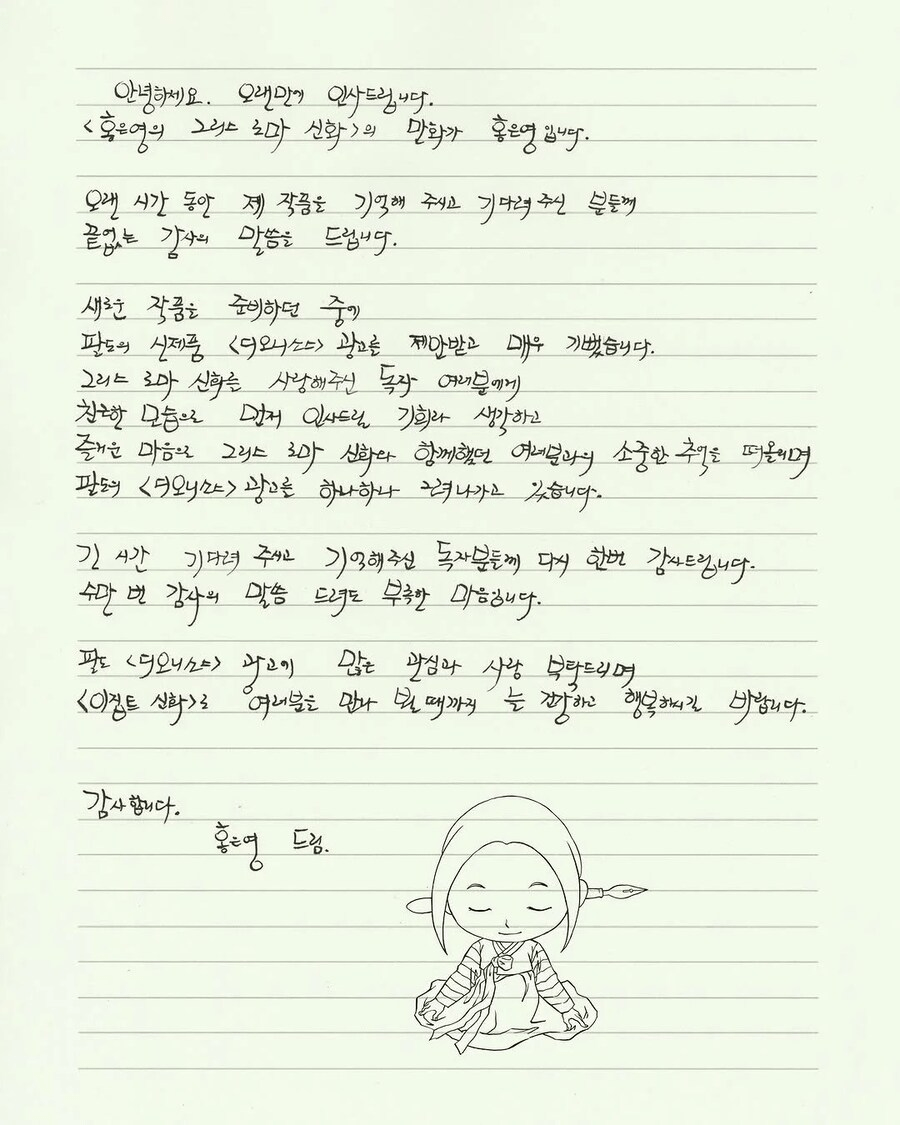 안녕하세요. 오랜만에 인사드립니다.
<홍은영의 그리스 로마 신화>의 만화가 홍은영입니다.
오랜 시간 동안 제 작품을 기억해 주시고 기다려 주신 분들께
끝없는 감사의 말씀을 드립니다.
새로운 작품을 준비하던 중에
팔도의 신제품 <디오니소스> 광고를 제안받고 매우 기뻤습니다.
그리스 로마 신화를 사랑해주신 독자 여러분에게
친근한 모습으로 먼저 인사드릴 기회라 생각하고
즐거운 마음으로 그리스 로마 신화와 함께했던 여러분과의 소중한 추억을 떠올리며
팔도의 <디오니소스> 광고를 하나하나 그려나가고 있습니다.
긴 시간 기다려 주시고 기억해주신 독자분들께 다시 한번 감사드립니다.
수만 번 감사의 말씀 드려도 부족한 마음입니다.
팔도 <디오니소스> 광고에 많은 관심과 사랑 부탁드리며
<이집트 신화>로 여러분을 만나 뵐 때까지 늘 건강하고 행복하시길 바랍니다.
감사합니다.
홍은영 드림.